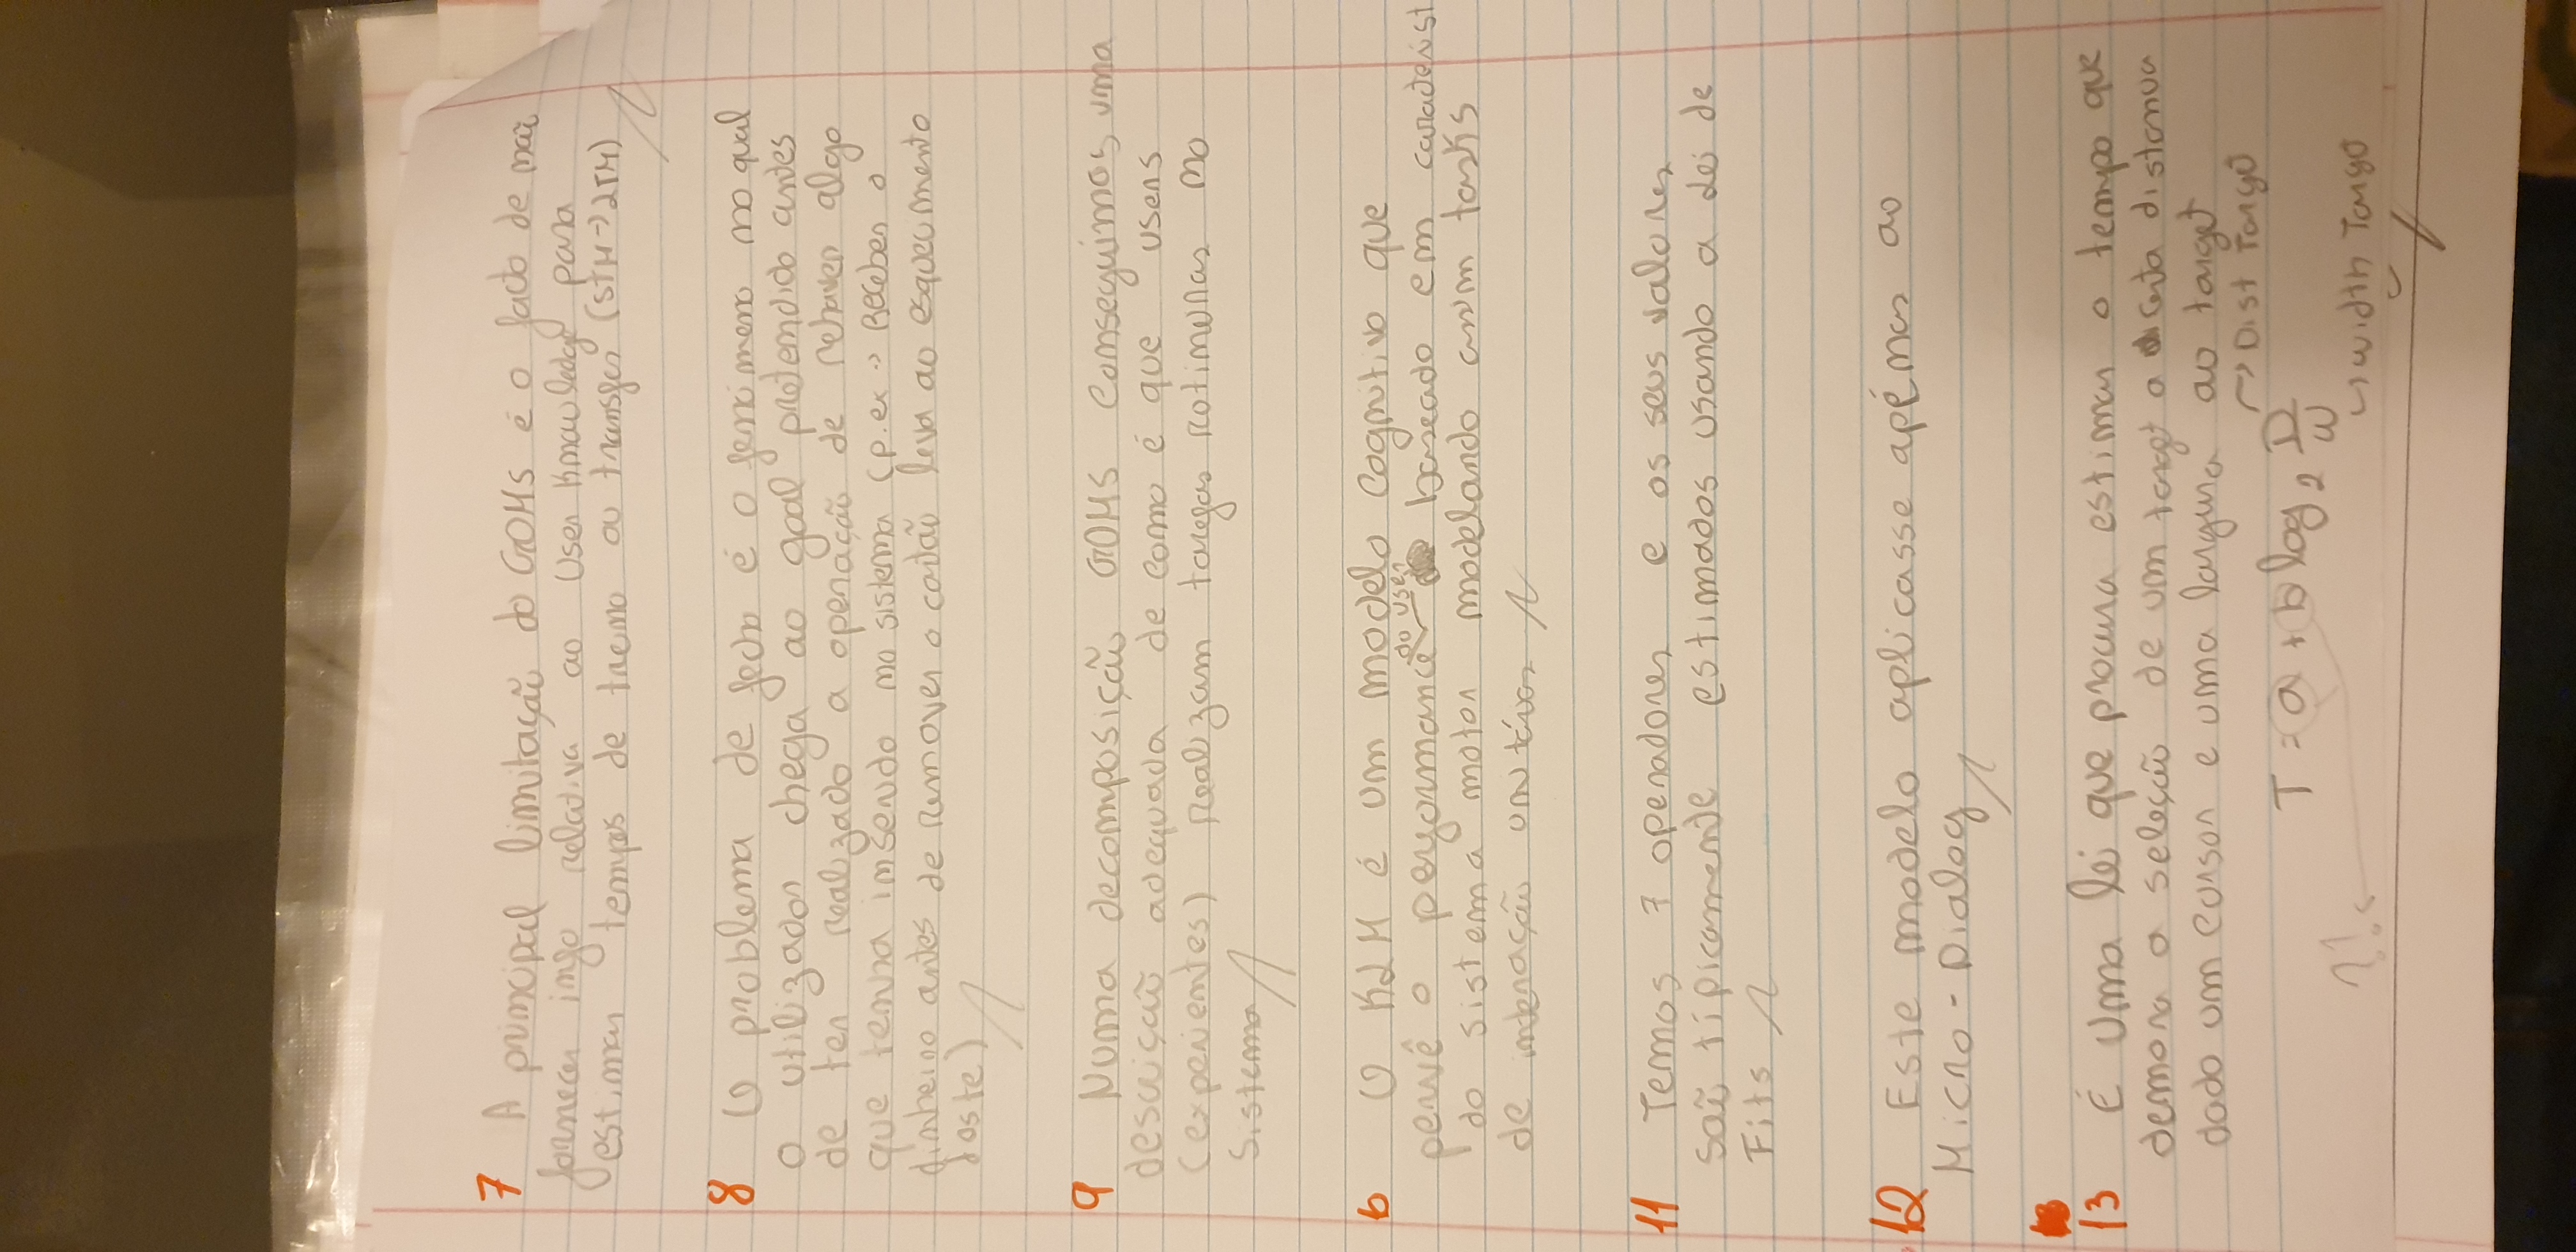 7 A principal limitação do GOMS é o facto de não
fornecer info relativa ao User Knowledge para
estimar tempos de treino ou transfer (STM→LTM)
8 O problema de fecho é o fenómeno no qual
o utilizador chega ao goal pretendido antes
de ter realizado a operação de rehaver algo
que tenha inserido no sistema (p.ex → Receber o
dinheiro antes de remover o cartão leva ao esquecimento
deste)
9 Numa decomposição GOMS conseguimos uma
descrição adequada de como é que users
(experientes) realizam tarefas rotineiras no
sistema
O KLM é um modelo cognitivo que
do user
prevê o performance baseado em caracterist
do sistema motor modelando assim tasks
de interação unitárias
11 Temos 7 operadores e os seus valores
são tipicamente estimados usando a Lei de
Fits
12 Este modelo aplicasse apenas ao
Micro-Dialog
13 É uma lei que procura estimar o tempo que
demora a seleção de um target a certa distancia
dado um cursor e uma largura ao target
→ Dist Target
T = a + b log₂ D/W
?!
→ width Target